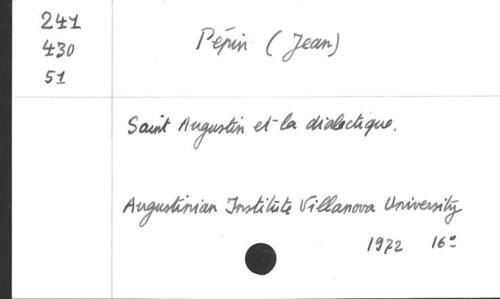 241
430
51
Pépin (Jean)
Saint Augustin et la dialectique.
Augustinian Institute Villanova University
1972 16°